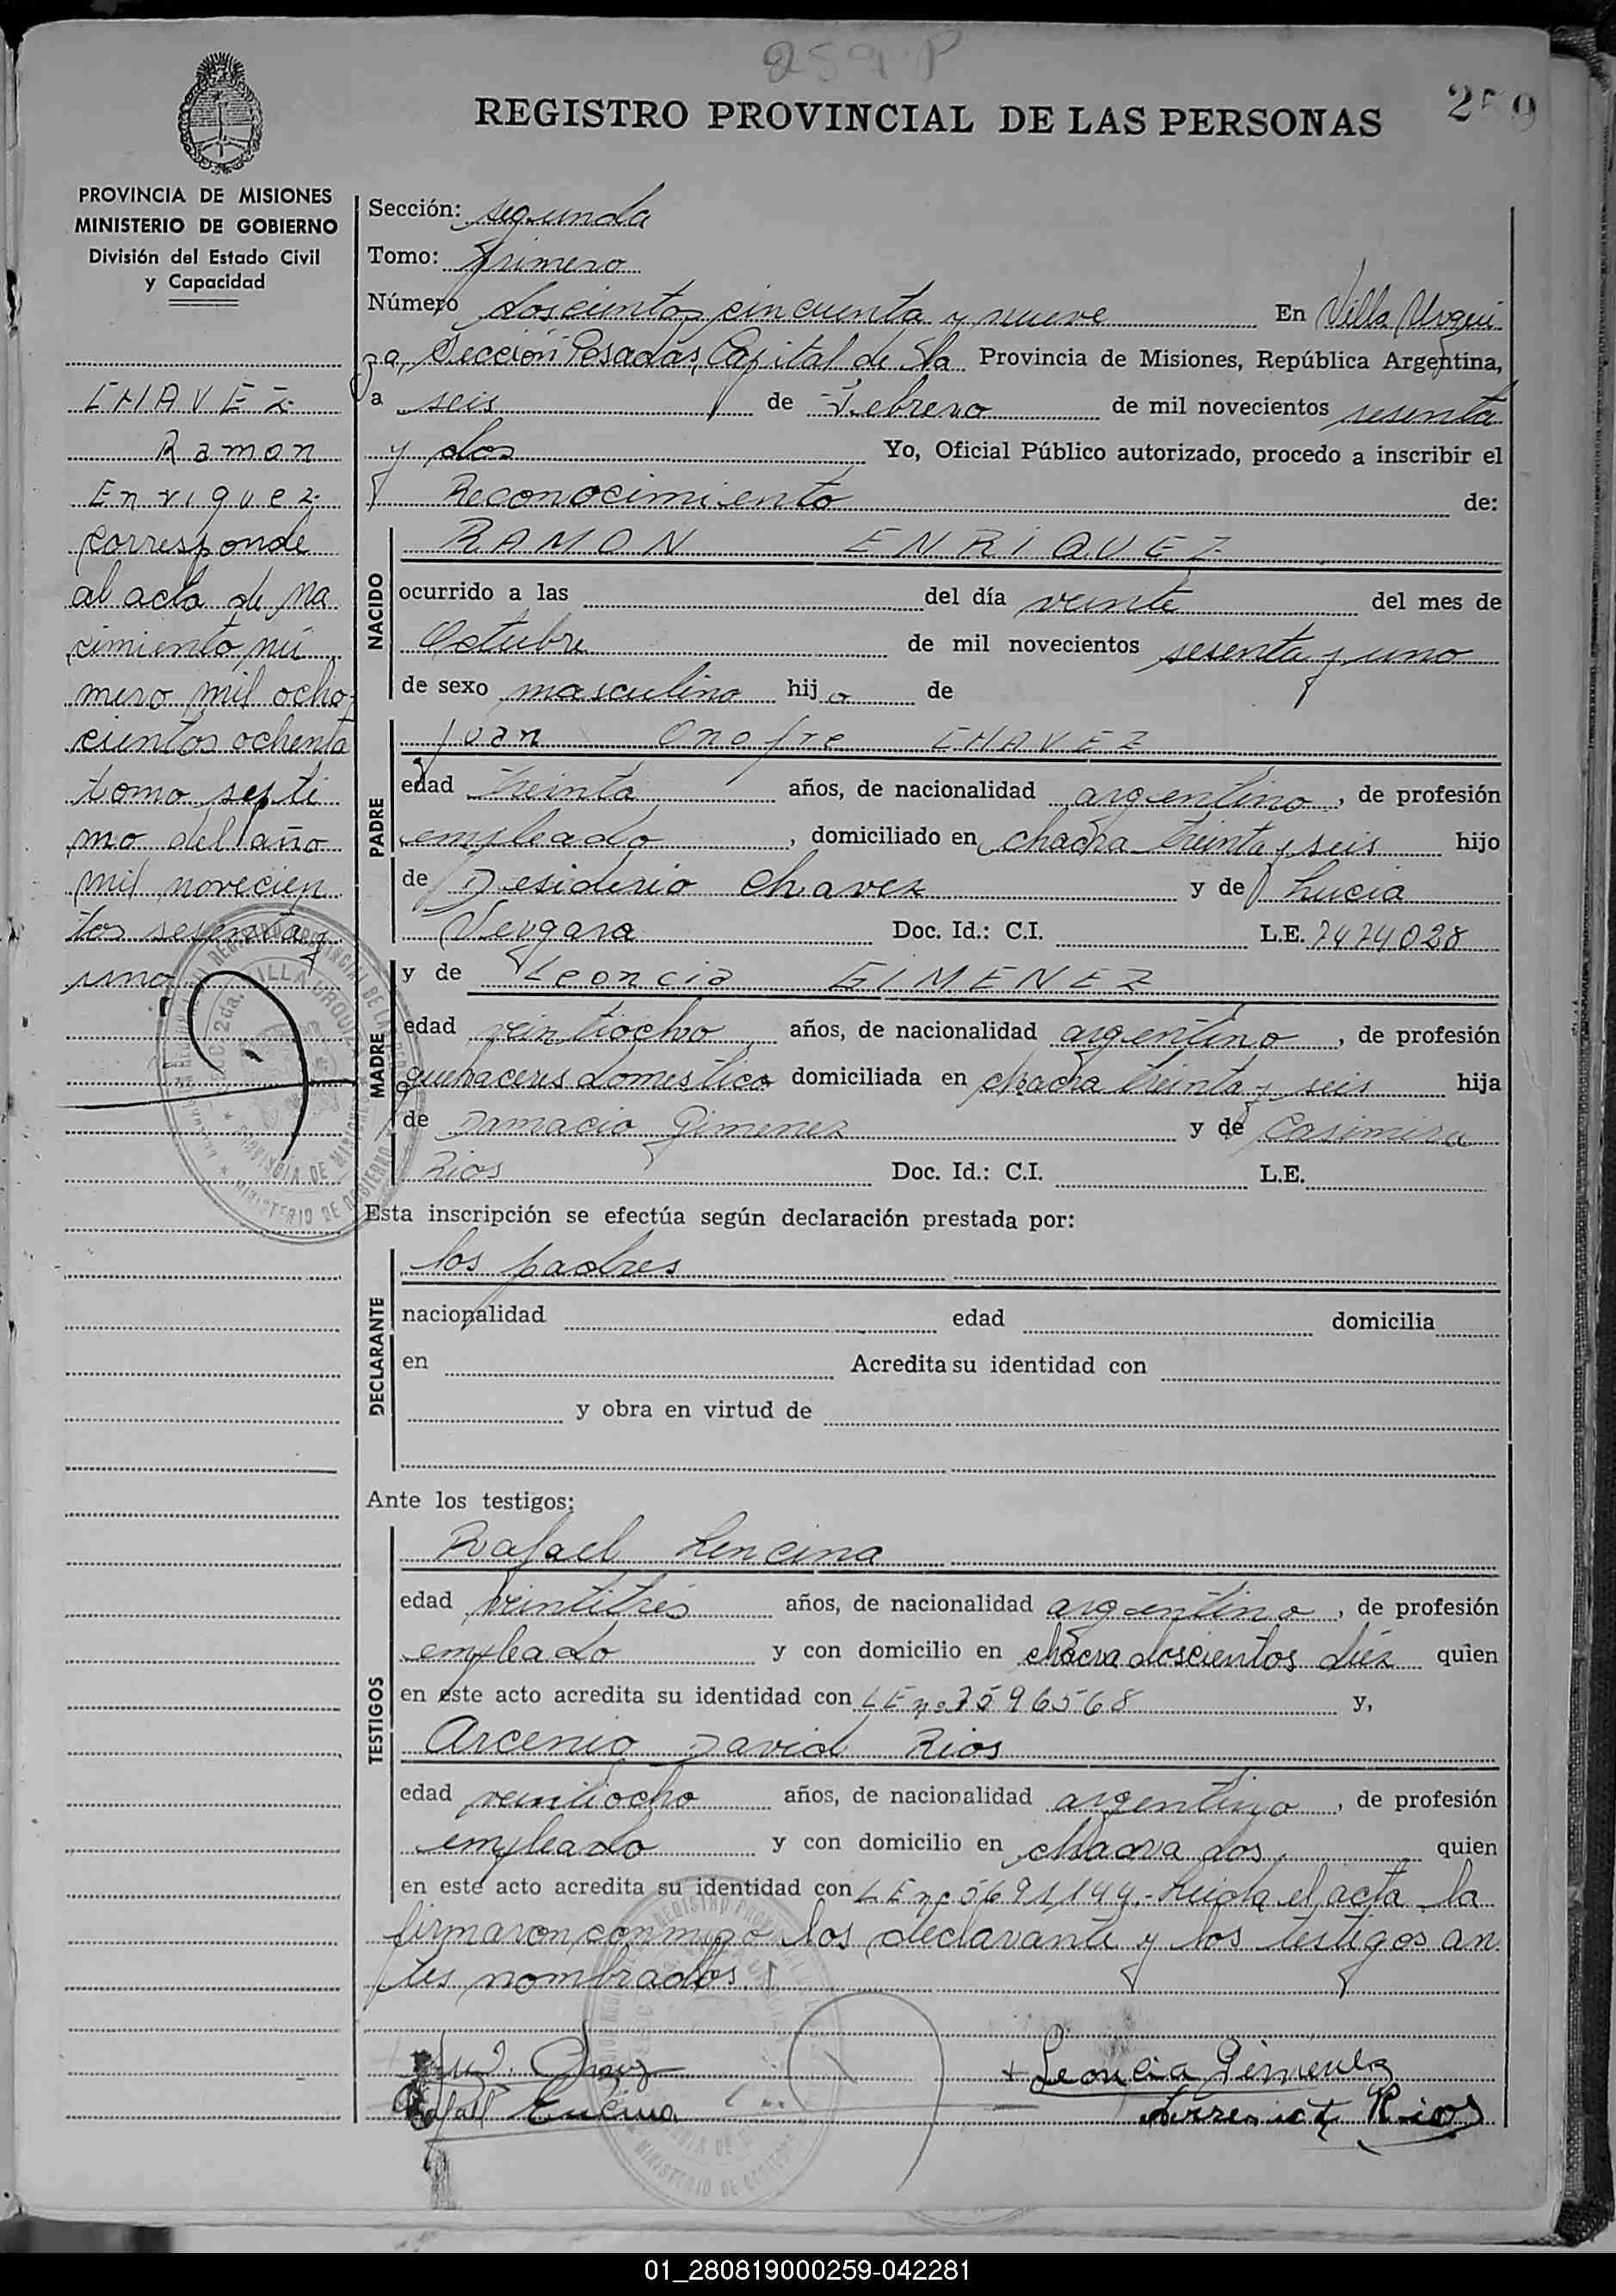 259 P
REGISTRO PROVINCIAL DE LAS PERSONAS
259
PROVINCIA DE MISIONES
MINISTERIO DE GOBIERNO
División del Estado Civil
y Capacidad
CHAVEZ
Ramon
Enriquez
corresponde
al acta de na
cimiento nú
mero mil ocho
cientos ochenta
tomo septi
mo del año
mil novecien
tos sesenta y
uno
Sección: segunda
Tomo: Primero
Número doscientos cincuenta y nueve En Villa Urqui
za, Sección Posadas, Capital de la Provincia de Misiones, República Argentina,
a seis de Febrero de mil novecientos sesenta
y dos Yo, Oficial Público autorizado, procedo a inscribir el
Reconocimiento de:
NACIDO
RAMON ENRIQUEZ
ocurrido a las del día veinte del mes de
Octubre de mil novecientos sesenta y uno
de sexo masculino hijo de
PADRE
Juan Onofre CHAVEZ
edad treinta años, de nacionalidad argentino, de profesión
empleado, domiciliado en chacra treinta y seis hijo
de Desiderio Chavez y de Lucia
Vergara Doc. Id.: C.I. L.E. 7474028
MADRE
y de Leoncia GIMENEZ
edad veintiocho años, de nacionalidad argentino, de profesión
quehaceres domestico domiciliada en chacra treinta y seis hija
de Damacio Gimenez y de Casimira
Rios Doc. Id.: C.I. L.E.
Esta inscripción se efectúa según declaración prestada por:
DECLARANTE
los padres
nacionalidad edad domicilia
en Acredita su identidad con
y obra en virtud de
Ante los testigos:
TESTIGOS
Rafael Lencina
edad veintitres años, de nacionalidad argentino, de profesión
empleado y con domicilio en chacra doscientos diéz quien
en este acto acredita su identidad con LE nº 7596568 y,
Arcenio David Rios
edad veintiocho años, de nacionalidad argentino, de profesión
empleado y con domicilio en chacra dos, quien
en este acto acredita su identidad con LE nº 5691144.- Leida el acta la
firmaron conmigo los declarante y los testigos an
tes nombrados.
Leoncia Gimenez
Rios
01_280819000259-042281